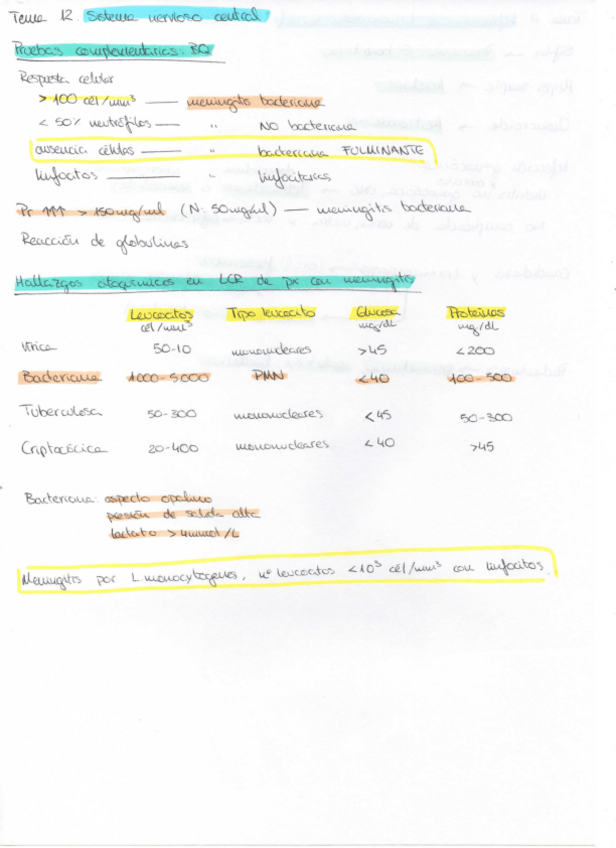 Tema 12. Sistema nervioso central
Pruebas complementarias: BQ
Respuesta celular
> 100 cél/mm³ —— meningitis bacteriana
< 50% neutrófilos —— " NO bacteriana
ausencia células —— " bacteriana FULMINANTE
linfocitos —— " linfocitarias
Pr ↑↑↑ > 150mg/ml (N: 50mg/dl) — meningitis bacteriana
Reacción de globulinas
Hallazgos citoquímicos en LCR de px con meningitis
Leucocitos cél/mm³ Tipo leucocito Glucosa mg/dL Proteínas mg/dL
Vírica 50-10 mononucleares >45 <200
Bacteriana 1000-5000 PMN <40 100-500
Tuberculosa 50-300 mononucleares <45 50-300
Criptocócica 20-400 mononucleares <40 >45
Bacteriana: aspecto opalino
presión de salida alta
lactato > 4mmol/L
Meningitis por L monocytogenes, nº leucocitos <10³ cél/mm³ con linfocitos.